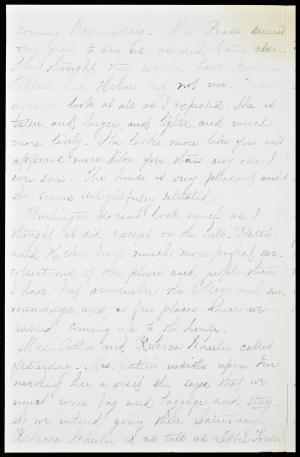 coming Wednesday. Mrs. Pease seemed
very glad to see us as did Katie also.
They thought they would have known
and Helen, but not me. Katie
doesnt look at all as I expected. She is
taller, and larger, and lighter, and much
more lively. She looks more like you and
appears more like you than any one I
ever saw. The house is very pleasant and
she seems delightfully situated.
Burlington doesnt look much as I
thought it did, except on the hill. Hattie
and Helen have much more perfect rec-
collections of the place and people than
I have. I remember the College and sur-
roundings, and a few places which we
passed coming up to the house.
Mrs. Catlin and Rebecca Wheeler called
yesterday. Mrs. Catlin insists upon our
making her a visit, she says that we
must come bag and baggage and stay.
So we intend going there Saturday.
Rebecca Wheeler is as tall as